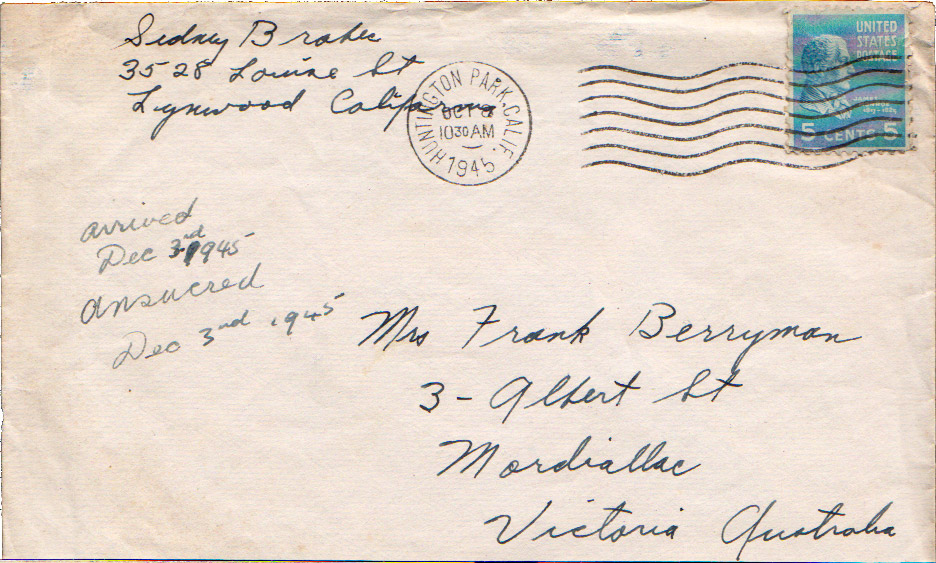 Sidney Brobec
3528 Louise St
Lynwood California
HUNTINGTON PARK, CALIF.
OCT 8
1030 AM
1945
UNITED
STATES
POSTAGE
5 CENTS 5
arrived
Dec 3rd 1945
answered
Dec 3rd 1945
Mrs Frank Berryman
3 - Albert St
Mordiallac
Victoria Australia